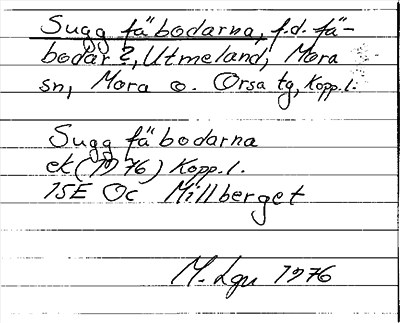 Sugg fäbodarna, f.d. fä-
bodar?, Utmeland, Mora
sn, Mora o. Orsa tg, Kopp.l.
Sugg fäbodarna
ek (1976) Kopp.l.
15E Oc Millberget
M. Lgn 1976